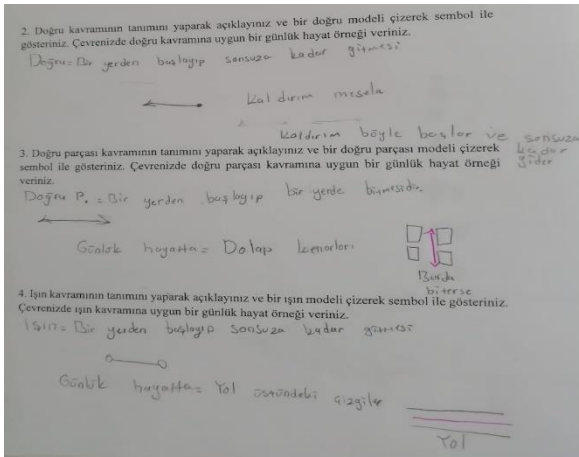 2. Doğru kavramının tanımını yaparak açıklayınız ve bir doğru modeli çizerek sembol ile
gösteriniz. Çevrenizde doğru kavramına uygun bir günlük hayat örneği veriniz.
Doğru = Bir yerden başlayıp sonsuza kadar gitmesi
Kaldırım mesela
Kaldırım böyle başlar ve sonsuza
kadar
gider
3. Doğru parçası kavramının tanımını yaparak açıklayınız ve bir doğru parçası modeli çizerek
sembol ile gösteriniz. Çevrenizde doğru parçası kavramına uygun bir günlük hayat örneği
veriniz.
Doğru P. = Bir yerden başlayıp bir yerde bitmesidir.
Günlük hayatta = Dolap kenarları
Burda
biterse
4. Işın kavramının tanımını yaparak açıklayınız ve bir ışın modeli çizerek sembol ile gösteriniz.
Çevrenizde ışın kavramına uygun bir günlük hayat örneği veriniz.
Işın = Bir yerden başlayıp sonsuza kadar gitmesi
Günlük hayatta = Yol üstündeki çizgiler
Yol